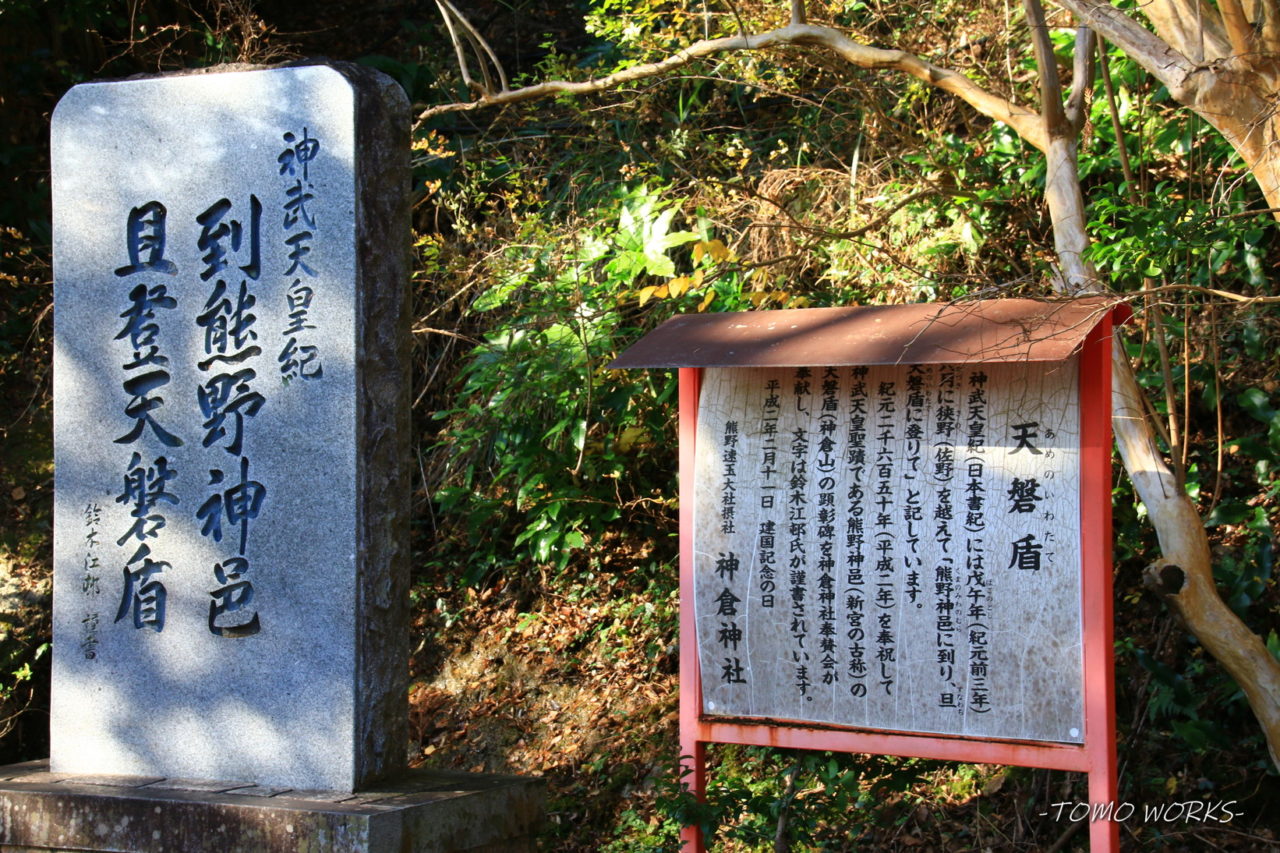 神武天皇紀
到熊野神邑
且登天磐盾
鈴木江邨 謹書
天磐盾
あめのいわたて
神武天皇紀（日本書紀）には戊午年（紀元前三年）
六月に狭野（佐野）を越えて「熊野神邑に到り、且
さの
くまのみわのむら
すなわち
天磐盾に登りて」と記しています。
紀元二千六百五十年（平成二年）を奉祝して
神武天皇聖蹟である熊野神邑（新宮の古称）の
天磐盾（神倉山）の顕彰碑を神倉神社奉賛会が
奉献し、文字は鈴木江邨氏が謹書されています。
平成二年二月十一日 建国記念の日
熊野速玉大社摂社 神倉神社
-TOMO WORKS-